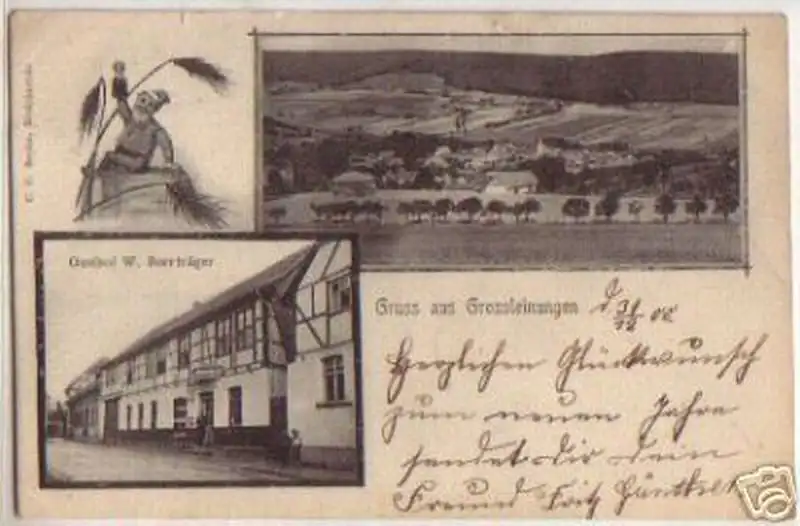 Gasthof W. Borrträger
Gruss aus Grossleinungen
d. 31/12 00
Herzlichen Glückwunsch
zum neuen Jahre
sendet Dir dein
Freund Fritz